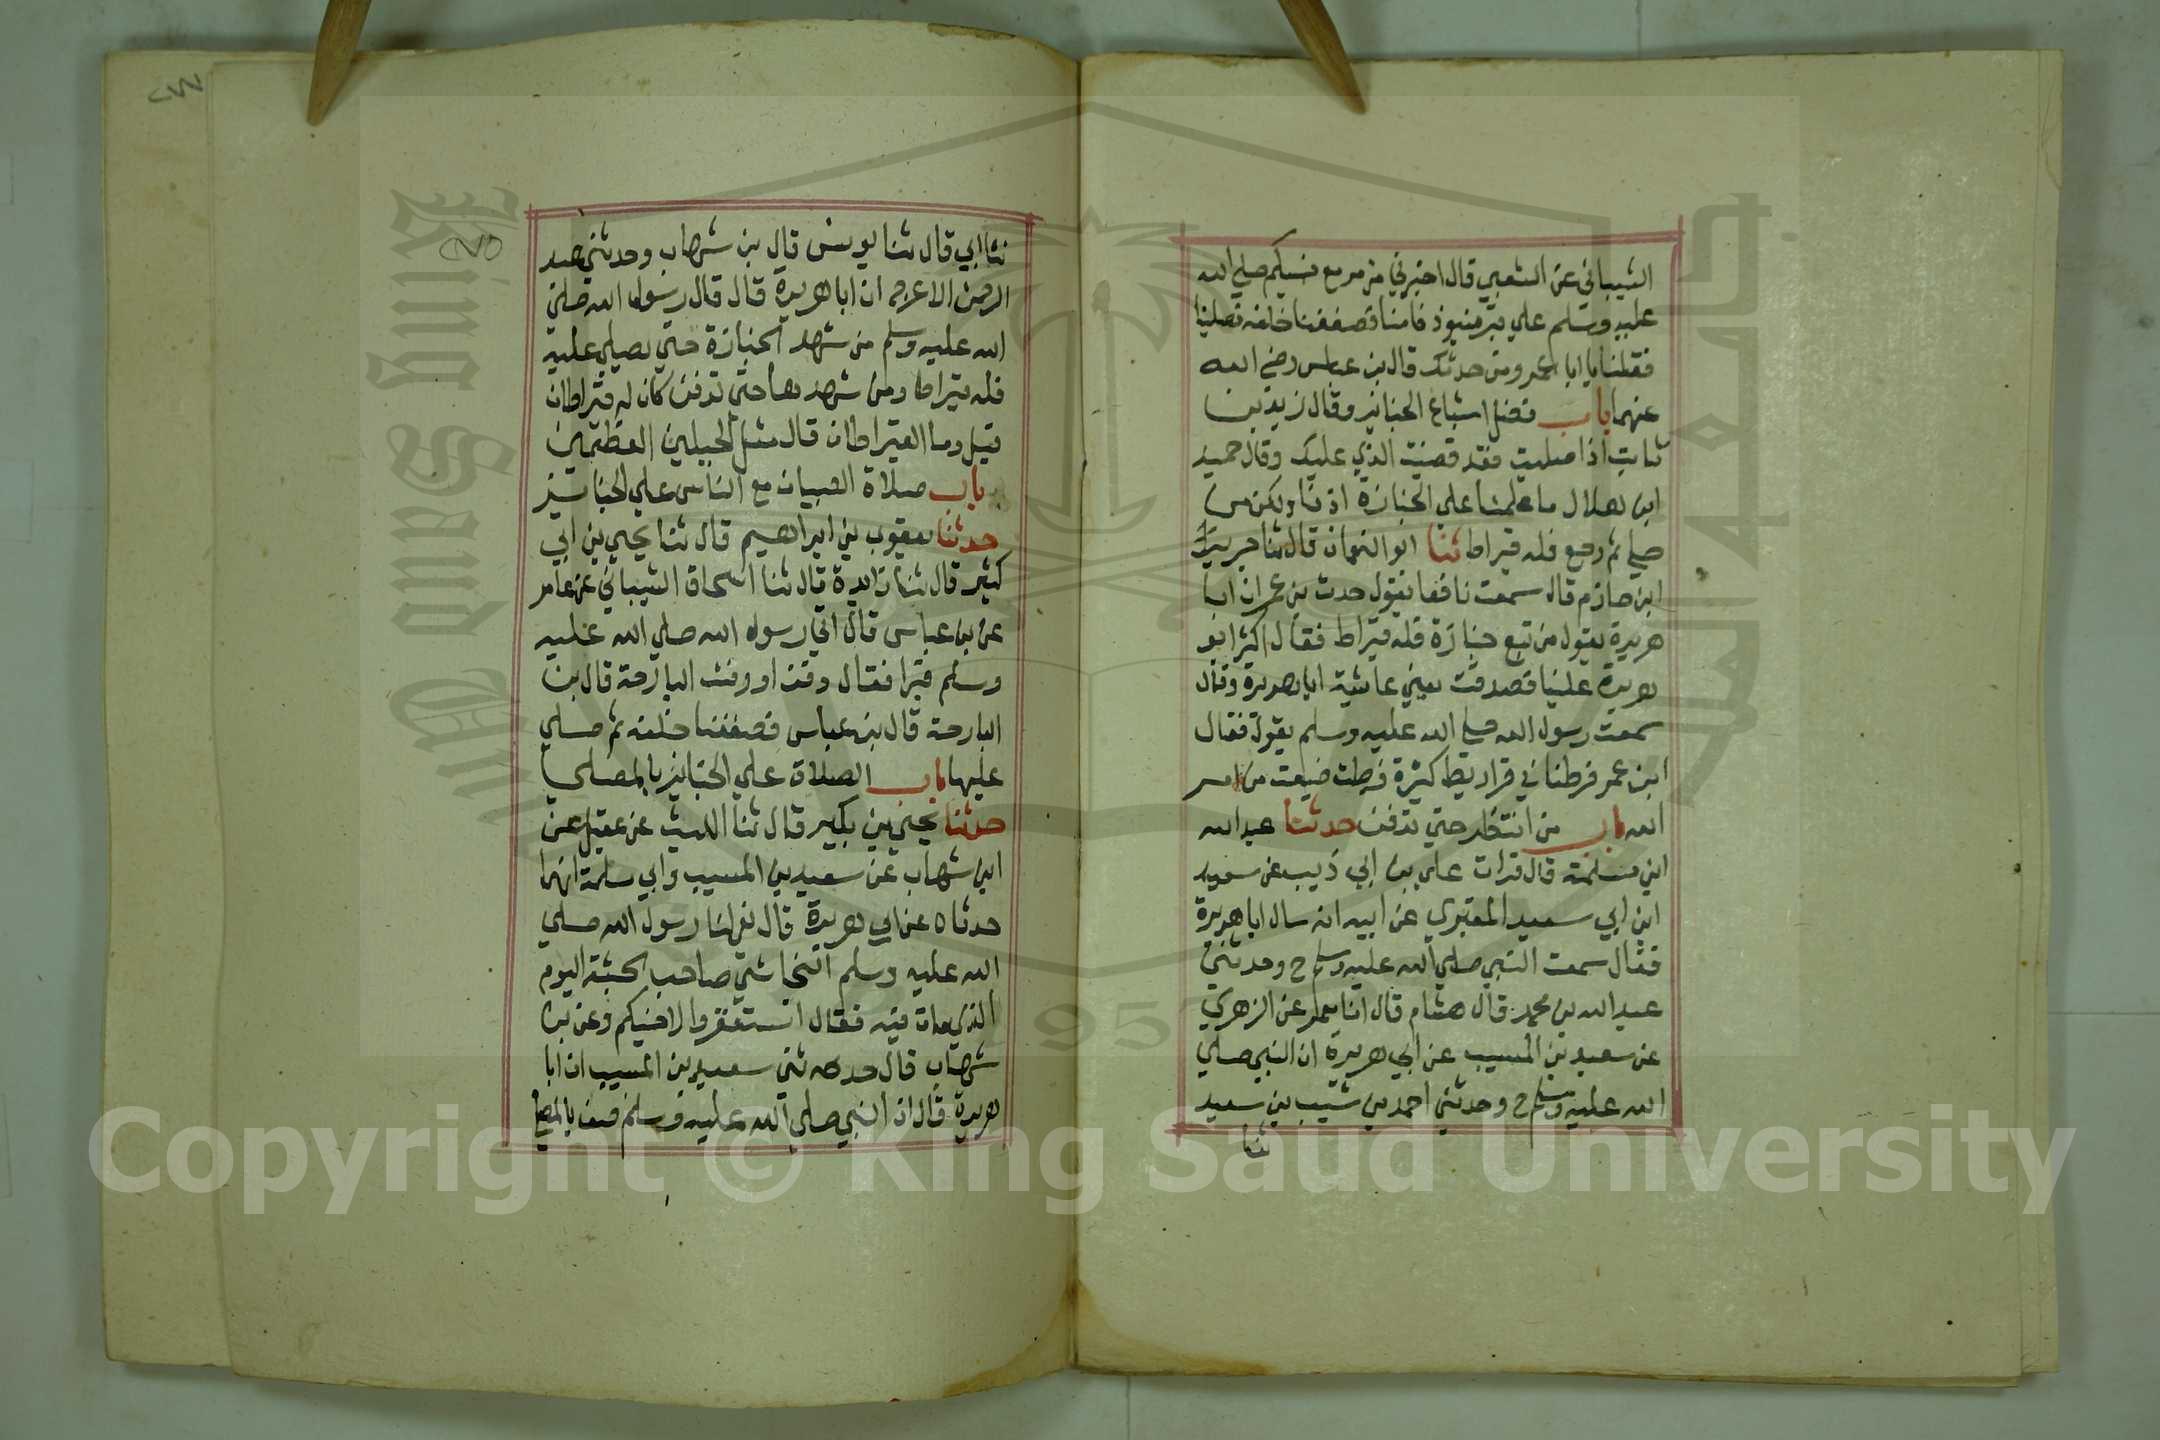 الشيباني عن الشعبي قال اخبرني من مر مع نبيكم صلي الله
عليه وسلم علي قبر منبوذ فامنا فصففنا خلفه فصلينا
فقلنا يا ابا عمرو من حدثك قال بن عباس رضي الله
عنهما باب فضل اتباع الجنايز وقال زيد بن
ثابت اذا صليت فقد قضيت الذي عليك وقال حميد
ابن هلال ما علمنا علي الجنازة اذنا ولكن من
صلي ثم رجع فله قيراط ثنا ابو النعمان قال ثنا جرير
ابن حازم قال سمعت نافعا يقول حدث بن عمر ان ابا
هريرة يقول من تبع جنازة فله قيراط فقال اكثر ابو
هريرة علينا فصدقت يعني عايشة ابا هريرة وقال
سمعت رسول الله صلي الله عليه وسلم يقول فقال
ابن عمر فرطنا في قراريط كثيرة فرطت ضيعت من امر
الله باب من انتظر حتي تدفن حدثنا عبد الله
ابن مسلمة قال قرات علي بن ابي ذيب عن سعيد
ابن ابي سعيد المقبري عن ابيه انه سال ابا هريرة
فقال سمعت النبي صلي الله عليه وسلم ح وحدثني
عبد الله بن محمد قال هشام قال انا معمر عن الزهري
عن سعيد بن المسيب عن ابي هريرة ان النبي صلي
الله عليه وسلم ح وحدثني احمد بن شبيب بن سعيد
ثنا
٢٥
ثنا ابي قال ثنا يونس قال بن شهاب وحدثني عبد
الرحمن الاعرج ان ابا هريرة قال قال رسول الله صلي
الله عليه وسلم من شهد الجنازة حتي يصلي عليه
فله قيراط ومن شهدها حتي تدفن كان له قيراطان
قيل وما القيراطان قال مثل الجبلين العظيمين
باب صلاة الصبيان مع الناس علي الجنايز
حدثنا يعقوب بن ابراهيم قال ثنا يحيي بن ابي
كثير قال ثنا زايدة قال ثنا اسحاق الشيباني عن عامر
عن بن عباس قال اتي رسول الله صلي الله عليه
وسلم قبرا فقال دفن او دفنت البارحة قال بن
البارحة قال بن عباس فصففنا خلفه ثم صلي
عليها باب الصلاة علي الجنايز بالمصلي
حدثنا يحيي بن بكير قال ثنا الليث عن عقيل عن
ابن شهاب عن سعيد بن المسيب وابي سلمة انهما
حدثاه عن ابي هريرة قال نعي لنا رسول الله صلي
الله عليه وسلم النجاشي صاحب الحبشة اليوم
الذي مات فيه فقال استغفروا لاخيكم وعن بن
شهاب قال حدثني سعيد بن المسيب ان ابا
هريرة قال ان النبي صلي الله عليه وسلم صف بالمصلي
Copyright © King Saud University
King Saud University
1957